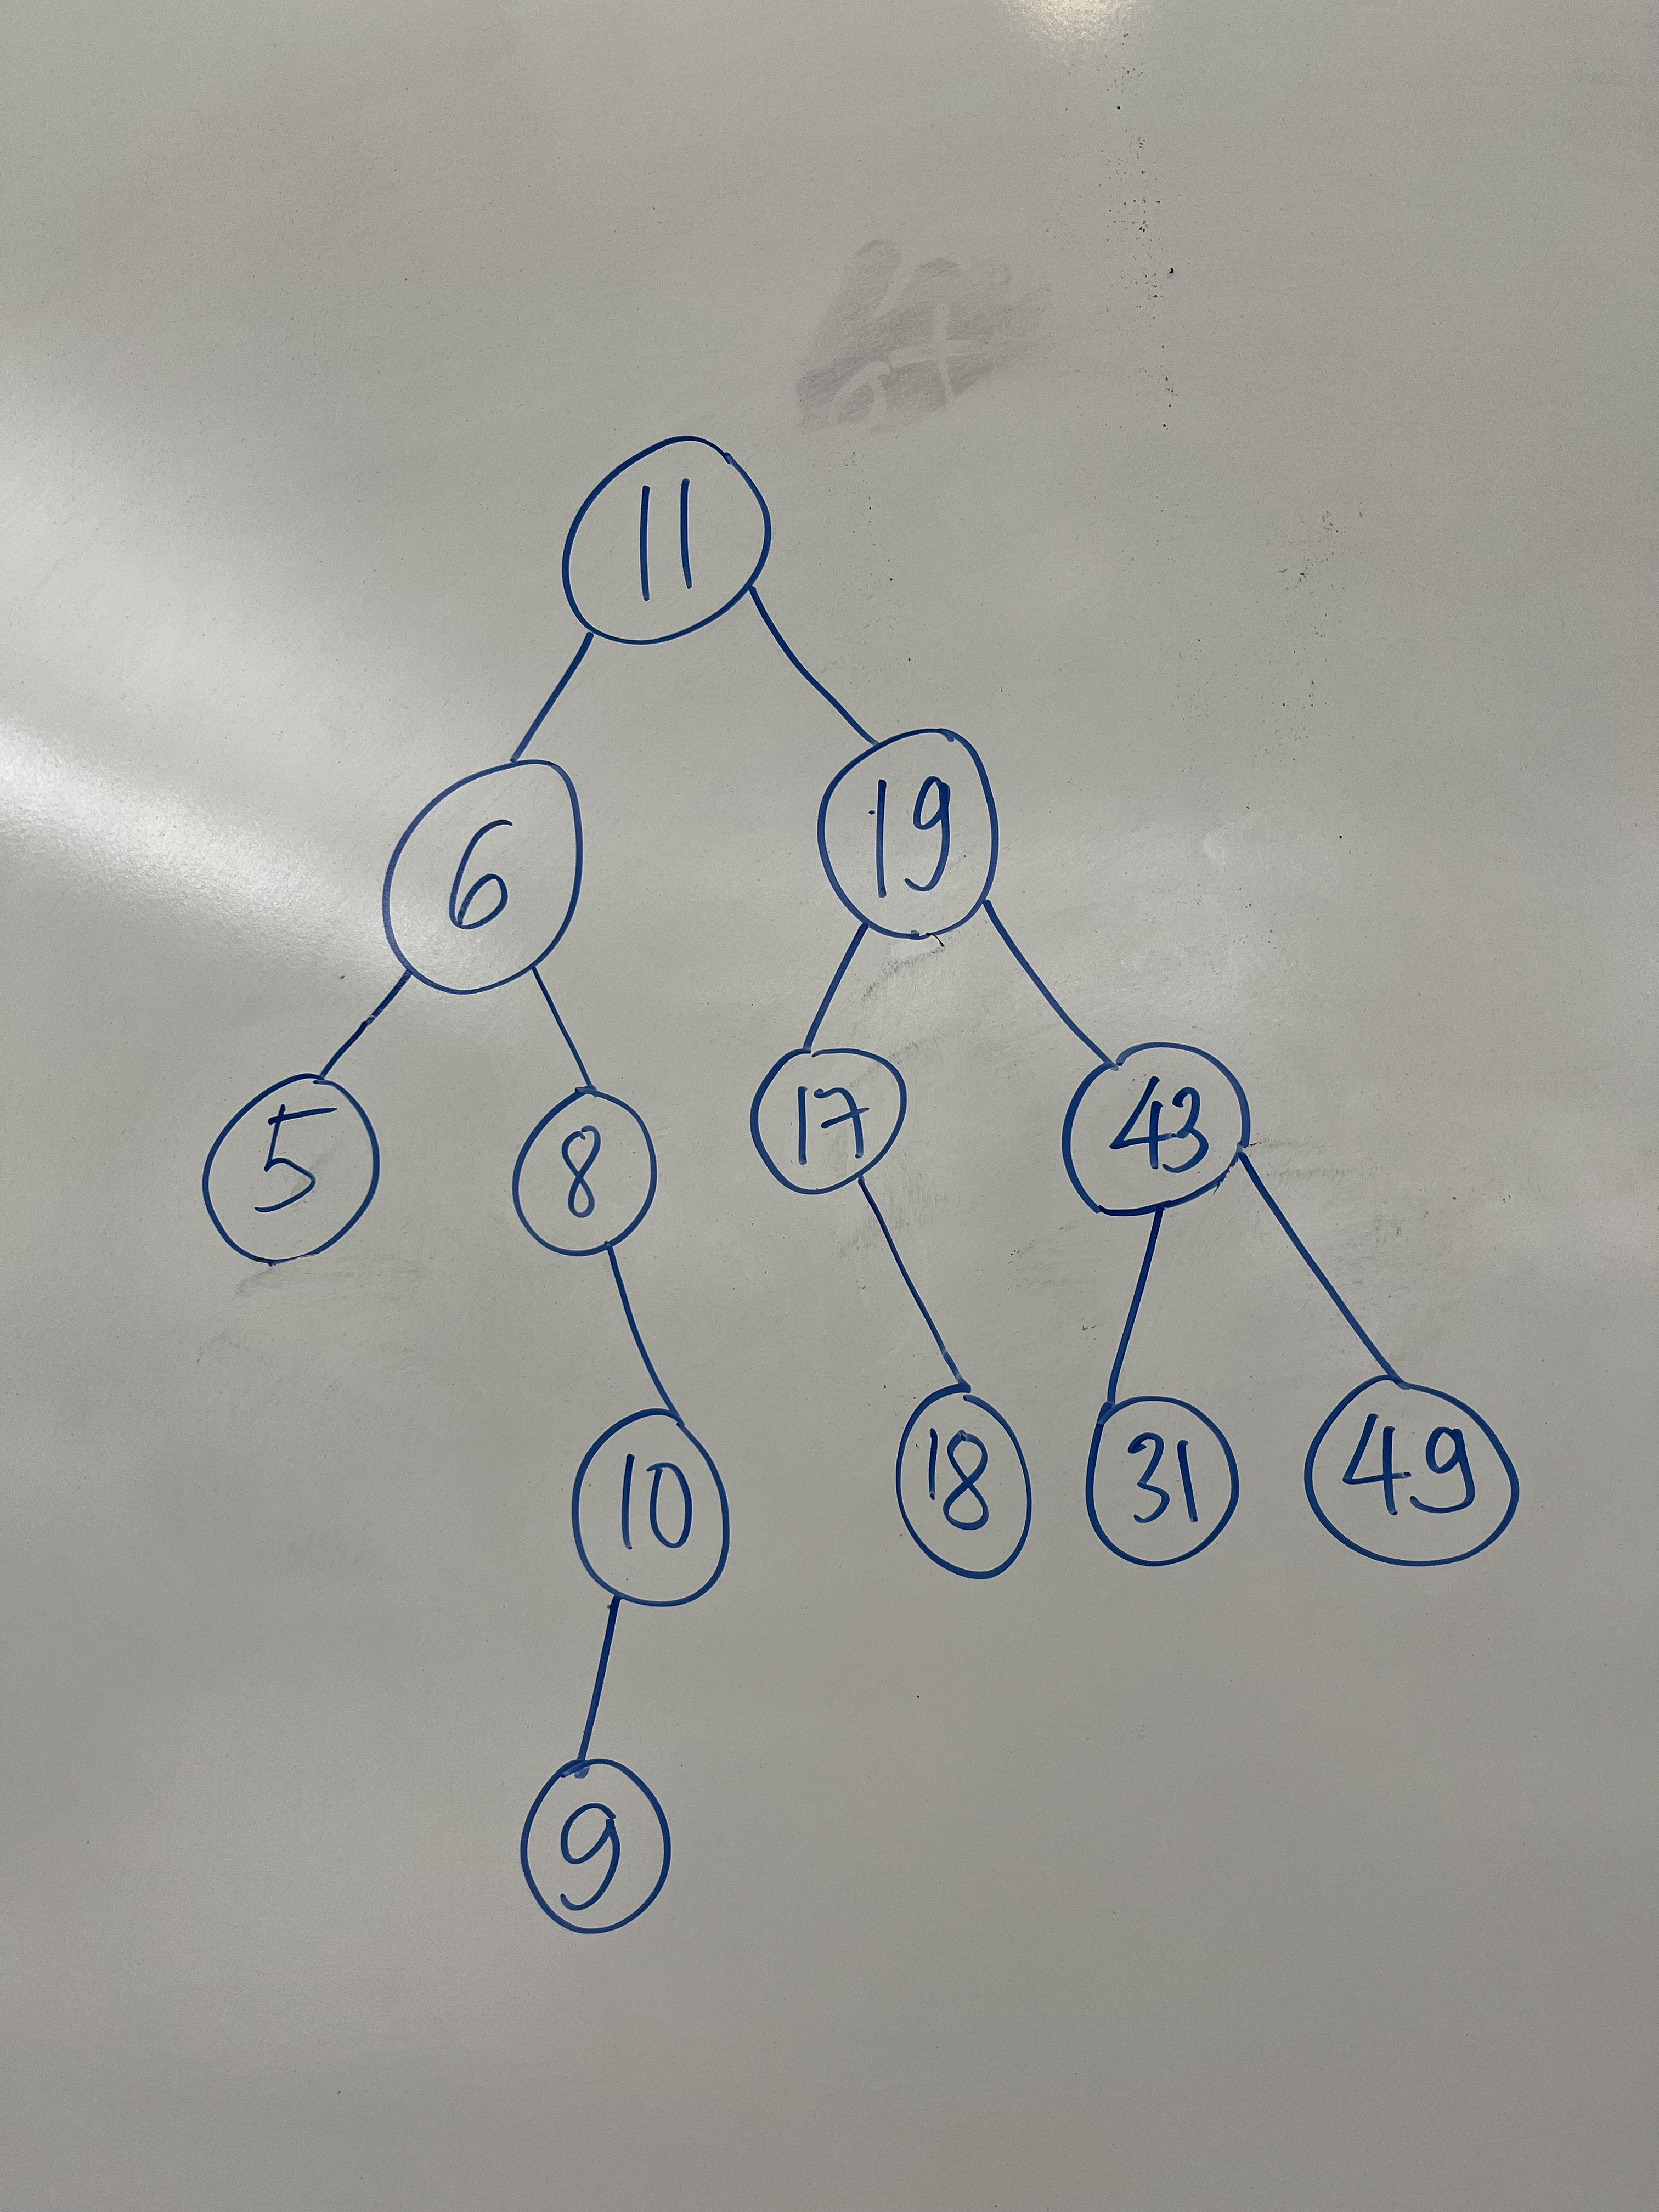 11
6 19
5 8 17 43
10 18 31 49
9